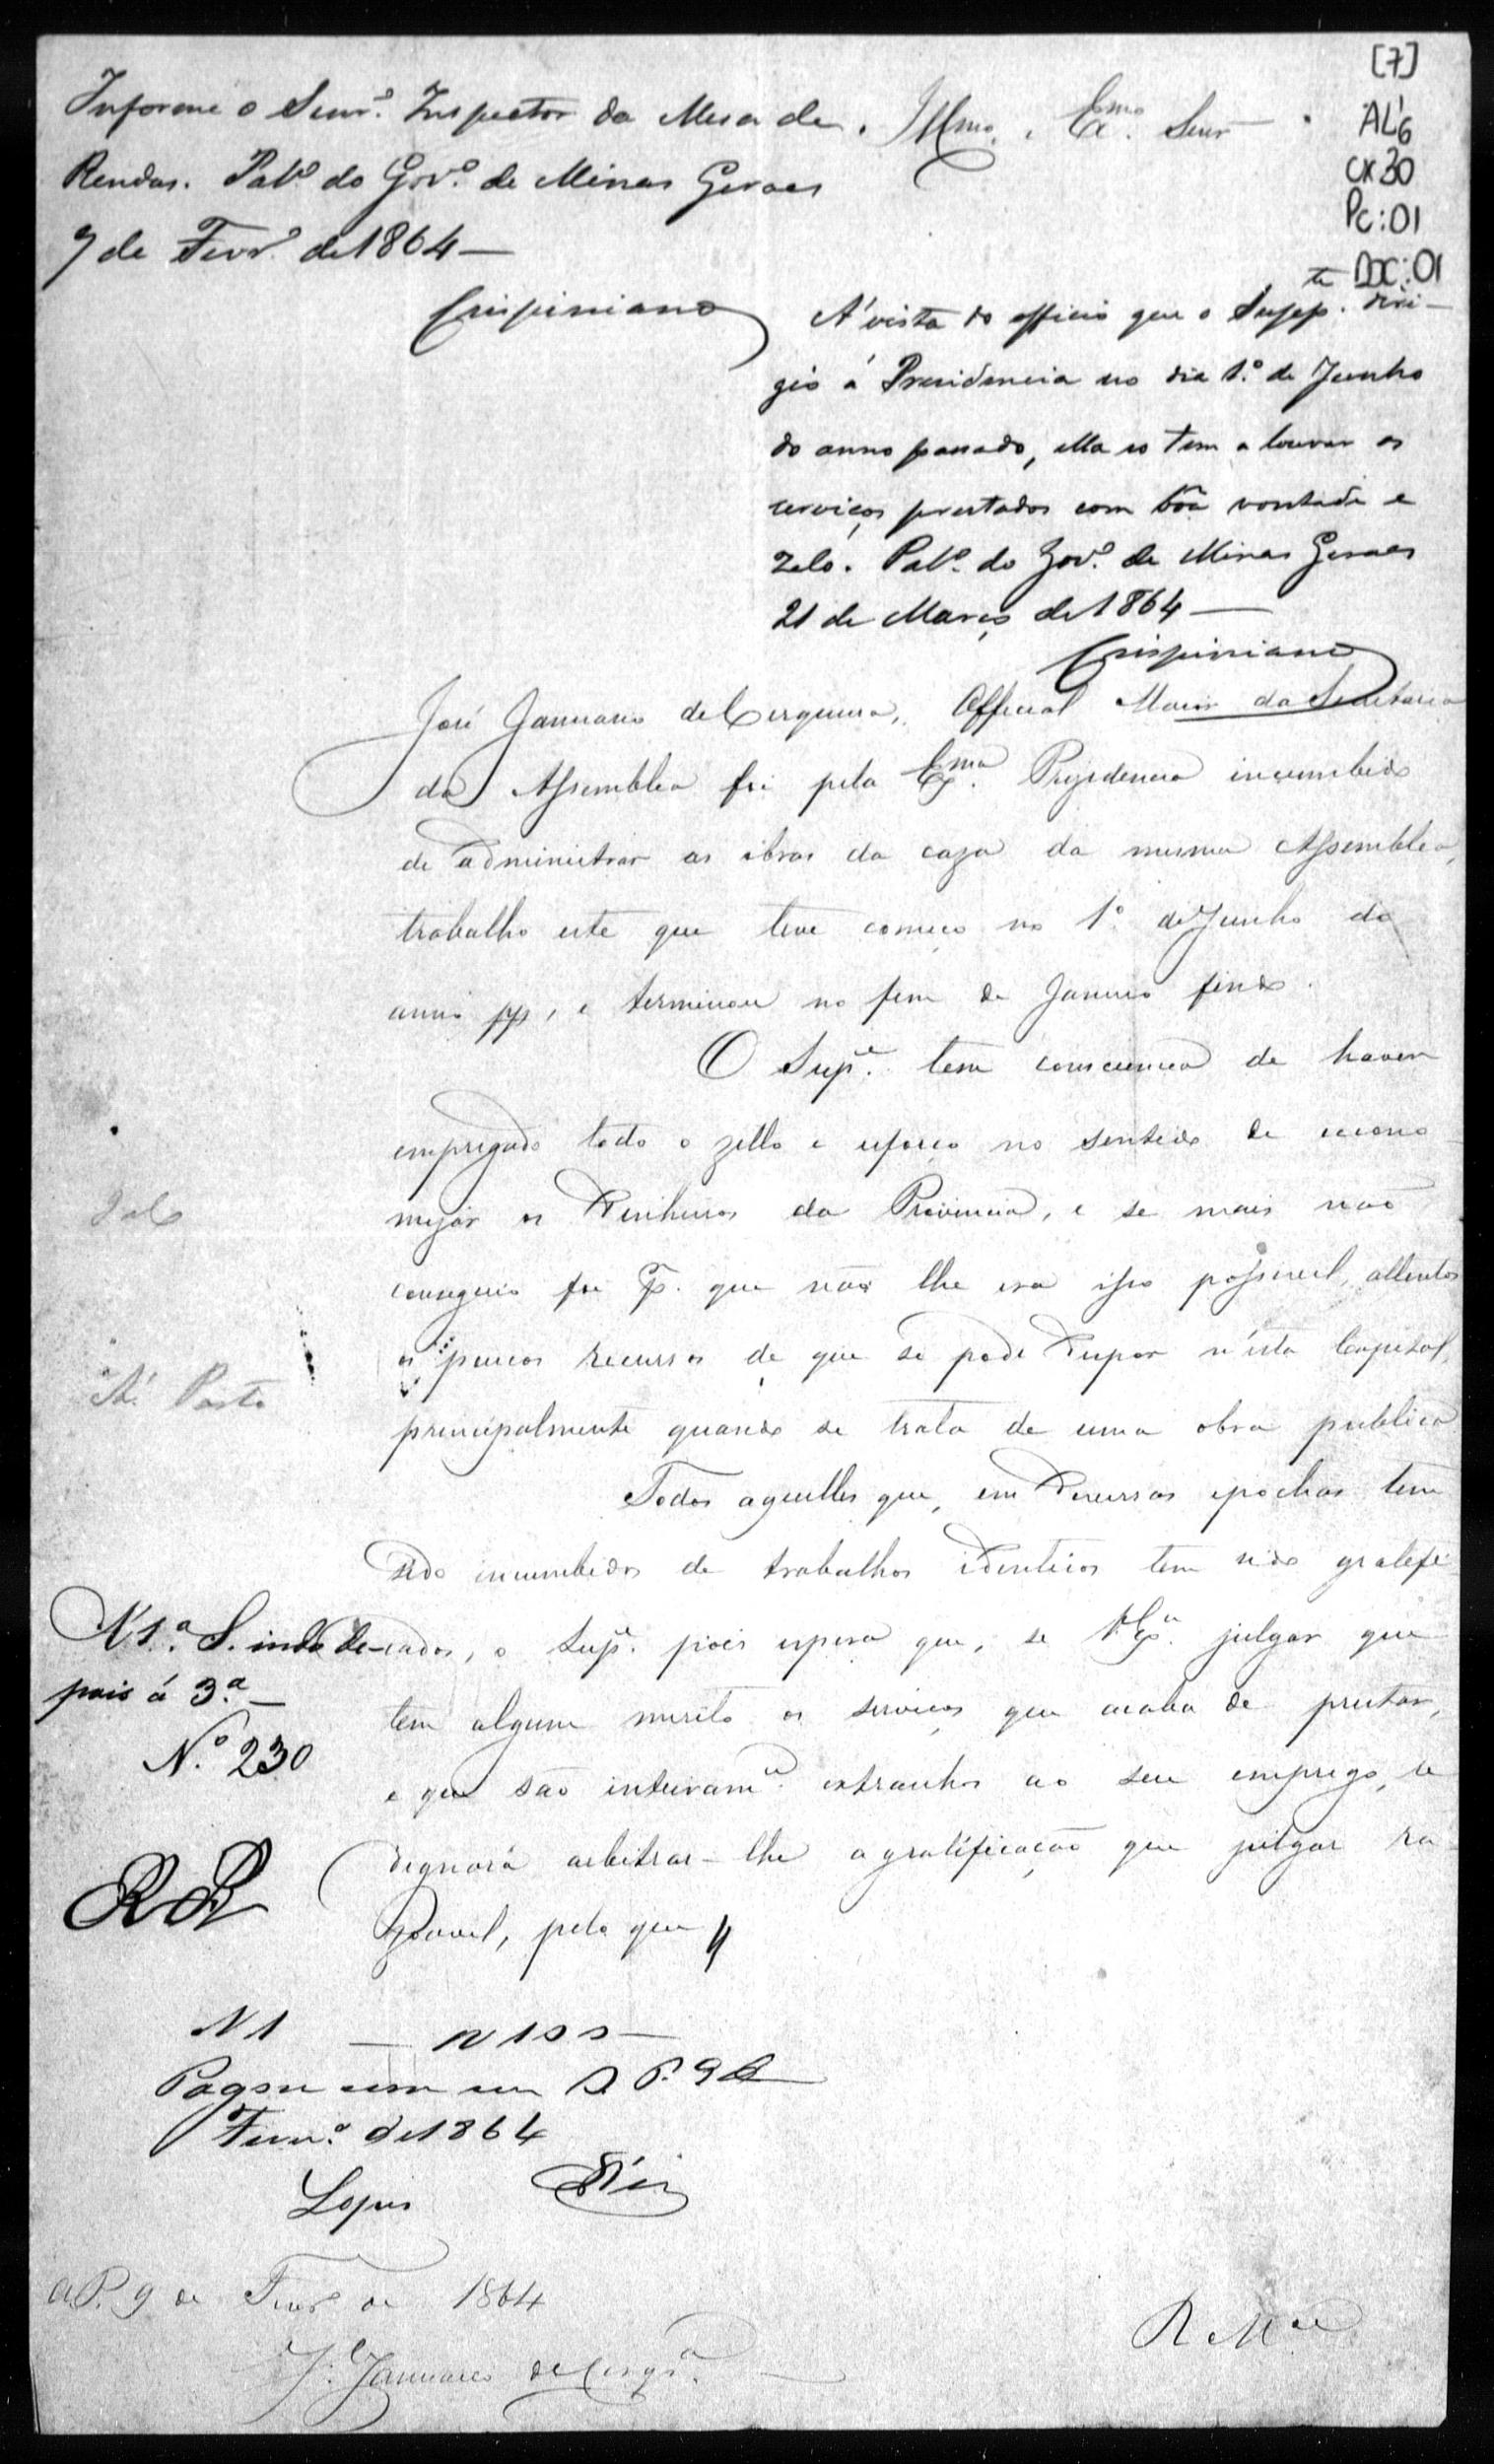 [7]
AL'6
CX30
Pc:01
DOC:01
Informe o Senr. Inspector da Mesa de
Rendas. Palº do Govº de Minas Geraes
9 de Fevrº de 1864 —
Crispiniano
Illmo. Exmo. Senr
Á vista do officio que o Supp.te diri-
gio á Presidencia no dia 1.º de Junho
do anno passado, ella só tem a louvar os
serviços prestados com bôa vontade e
zelo. Palº do Govº de Minas Geraes
21 de Março de 1864 —
Crispiniano
José Januario de Cerqueira, Official Maior da Secretaria
da Assemblea foi pela Exma. Prezidencia incumbido
de administrar as obras da caza da mesma Assemblea,
trabalho este que teve começo no 1º de Junho do
anno pp, e terminou no fim de Janeiro findo.
O Supe. tem consciencia de haver
empregado todo o zello e esforço no sentido de econo
mizar os dinheiros da Provincia, e se mais não
conseguio foi p. que não lhe era isso possivel, attentos
os poucos recursos de que se pode dispor n'esta Capital,
principalmente quando se trata de uma obra publica
Todos aquelles que, em diversas epochas tem
sido incumbidos de trabalhos identicos tem sido gratifi
cados, o Supe. pois espera que, se V. Exa. julgar que
tem algum merito os serviços que acaba de prestar,
e que são inteiramte. extranhos ao seu emprego, se
dignará arbitrar-lhe a gratificação que julgar ra
zoavel, pelo que
Á 1.ª S. indo de-
pois á 3.ª —
N.º 230
N 1 — N 100 —
Fevrº de 1864
Lopes
O.P. 9 de Fevrº de 1864
Je. Januario de Cerqra.
R Mce